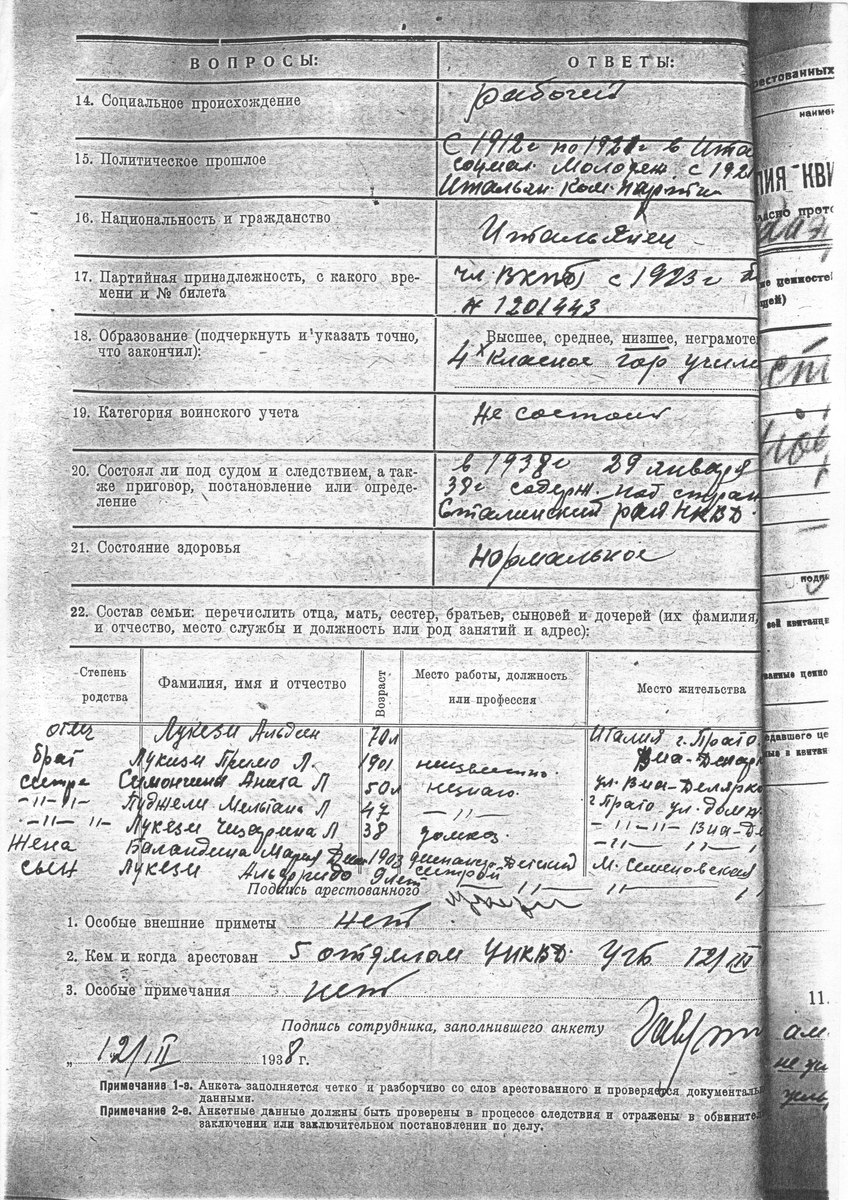 ВОПРОСЫ: ОТВЕТЫ:
14. Социальное происхождение рабочий
15. Политическое прошлое С 1912 г по 1921 г в Ита
социал. Молодеж. с 192
Итальян. Ком. Партии
16. Национальность и гражданство Итальянец
17. Партийная принадлежность, с какого вре-
мени и № билета
чл. ВКПб с 1923 г
№ 1201443
18. Образование (подчеркнуть и указать точно,
что закончил):
Высшее, среднее, низшее, неграмотн
4х класное гор учили
19. Категория воинского учета не состоял
20. Состоял ли под судом и следствием, а так-
же приговор, постановление или опреде-
ление
в 1938 г 29 января
38 г содерж. под страж
Сталинский рай НКВД
21. Состояние здоровья нормальное
22. Состав семьи: перечислить отца, мать, сестер, братьев, сыновей и дочерей (их фамилия,
и отчество, место службы и должность или род занятий и адрес):
Степень
родства
Фамилия, имя и отчество
Возраст
Место работы, должность
или профессия
Место жительства
отец Лукези 70 л Италия г. Прато
брат Лукези Примо Л. 1901 неизвестно
сестра Симончини Анита Л 50 л незнаю ул. Виа-
-"- "- 47 -"- г Прато ул.
-"- "- Лукези Чизарина Л 38 домхоз. -"-"- Виа-
Жена Баландина Мария 1903 М. Семеновская
сын Лукези 9 лет сестрой -"- "
Подпись арестованного
1. Особые внешние приметы нет
2. Кем и когда арестован 5 отделом УНКВД УГБ 12/III
3. Особые примечания нет
Подпись сотрудника, заполнившего анкету
„ 12/III 1938 г.
Примечание 1-е. Анкета заполняется четко и разборчиво со слов арестованного и проверяется документаль
данными.
Примечание 2-е. Анкетные данные должны быть проверены в процессе следствия и отражены в обвините
заключении или заключительном постановлении по делу.
рестованных
наимен
ПИЯ КВИ
ласно прото
ие ценностей
щей)
подпи
сей квитанци
ванные ценно
едавшего це
ные в квитан
11.